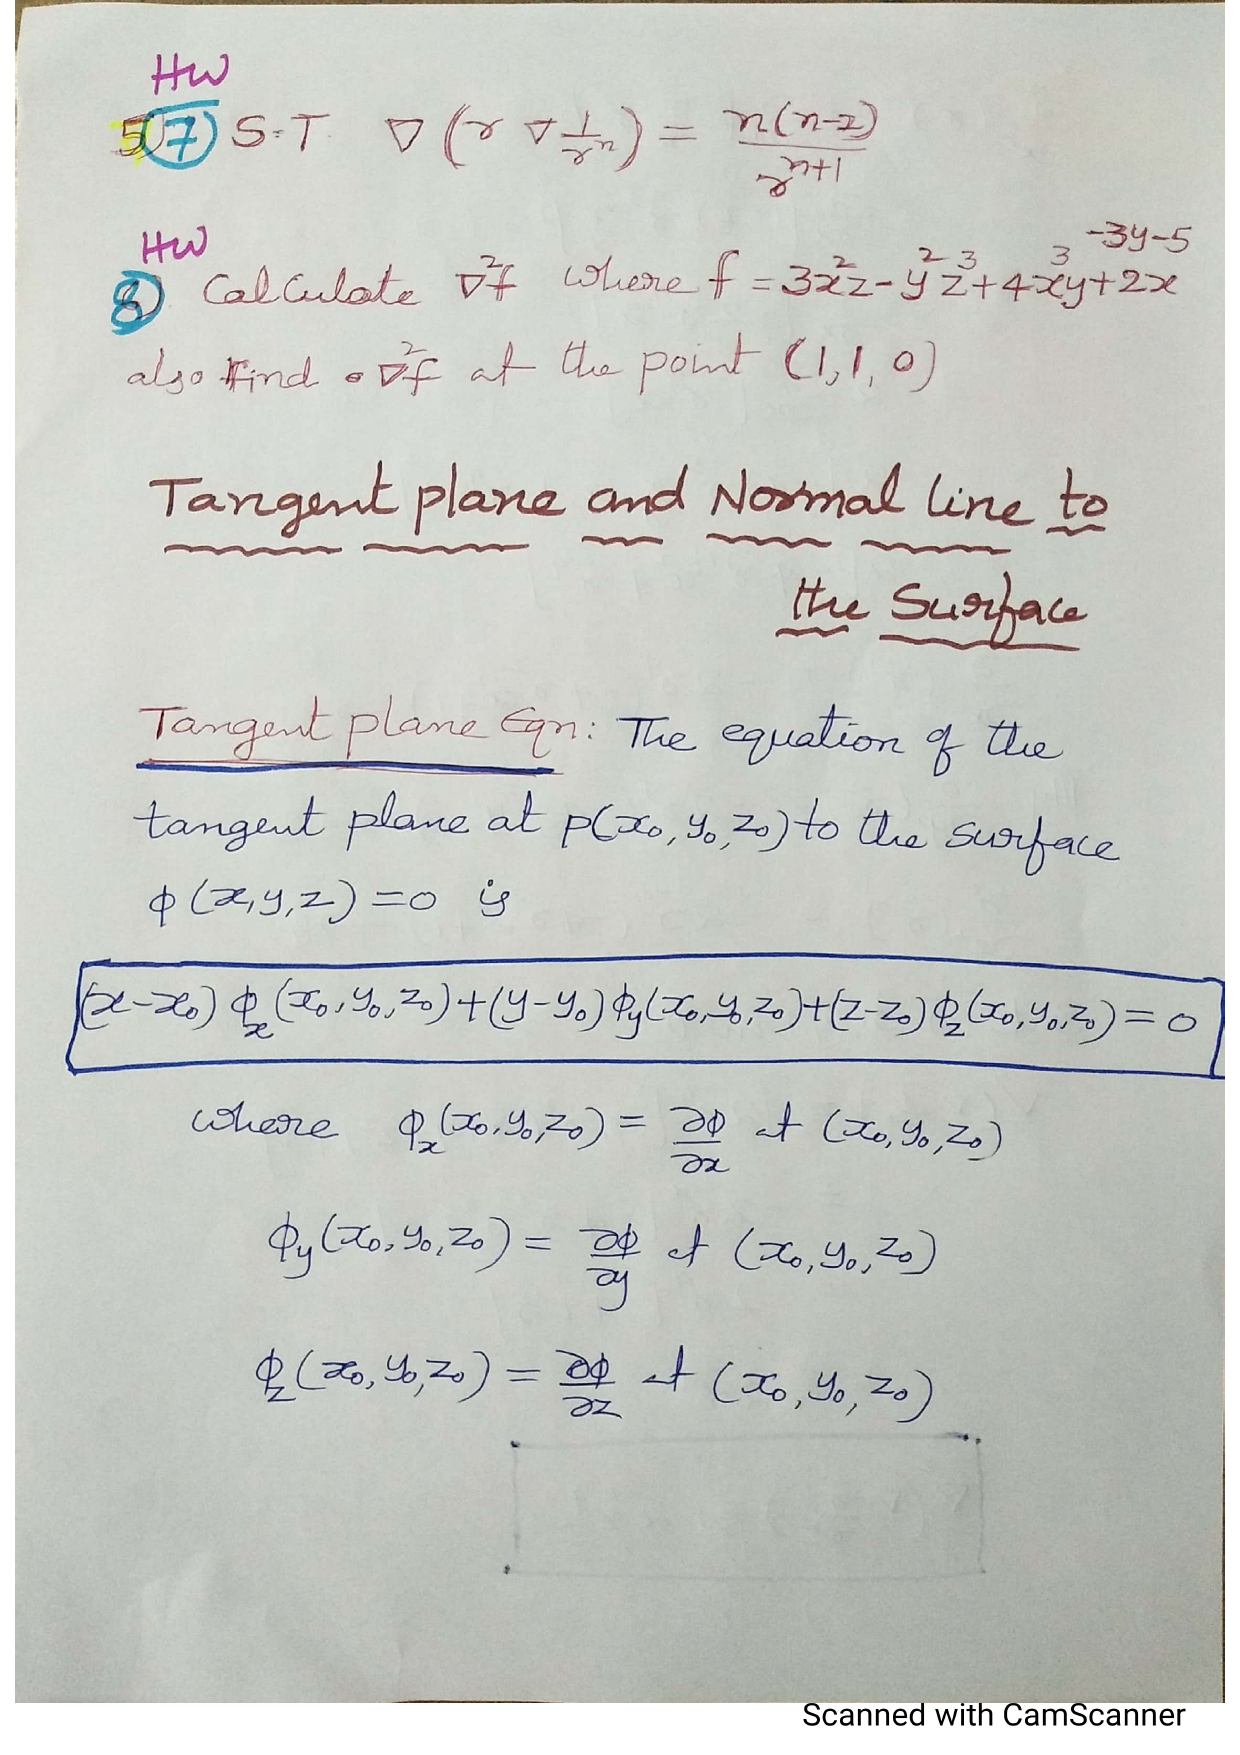 HW
5) 7) S.T ∇ (r ∇ 1/rⁿ) = n(n-2)/rⁿ⁺¹
HW
8) Calculate ∇²f where f = 3x²z - y²z³ + 4x³y + 2x -3y-5
also Find ∇²f at the point (1,1,0)
Tangent plane and Normal line to
the Surface
Tangent plane Eqn: The equation of the
tangent plane at p(x₀, y₀, z₀) to the surface
ϕ (x,y,z) = 0 is
(x-x₀) ϕₓ (x₀, y₀, z₀) + (y-y₀) ϕ_y (x₀, y₀, z₀) + (z-z₀) ϕ_z (x₀, y₀, z₀) = 0
where ϕₓ (x₀, y₀, z₀) = ∂ϕ/∂x at (x₀, y₀, z₀)
ϕ_y (x₀, y₀, z₀) = ∂ϕ/∂y at (x₀, y₀, z₀)
ϕ_z (x₀, y₀, z₀) = ∂ϕ/∂z at (x₀, y₀, z₀)
Scanned with CamScanner